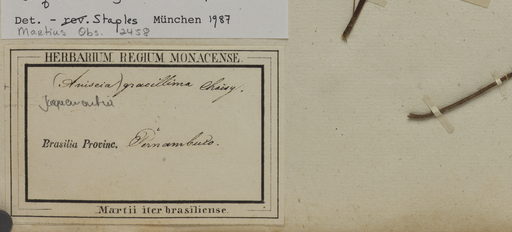 Det. – rev. Staples München 1987
Martius Obs. 2458
HERBARIUM REGIUM MONACENSE.
(Aniseia) gracillima Choisy.
Jacquemontia
Brasilia Provinc. Pernambuco.
Martii iter brasiliense.